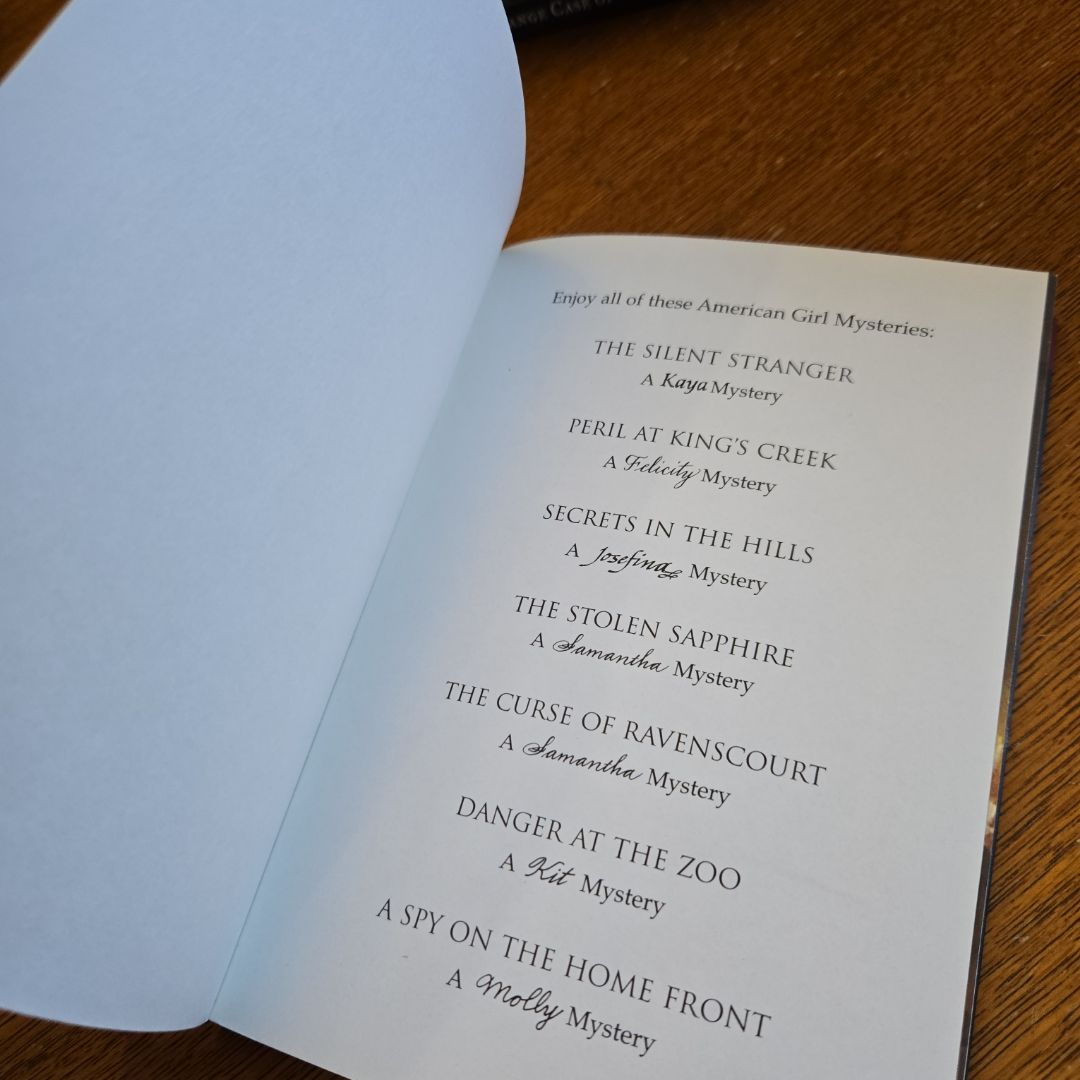 CASE OF
Enjoy all of these American Girl Mysteries:
THE SILENT STRANGER
A Kaya Mystery
PERIL AT KING'S CREEK
A Felicity Mystery
SECRETS IN THE HILLS
A Josefina Mystery
THE STOLEN SAPPHIRE
A Samantha Mystery
THE CURSE OF RAVENSCOURT
A Samantha Mystery
DANGER AT THE ZOO
A Kit Mystery
A SPY ON THE HOME FRONT
A Molly Mystery